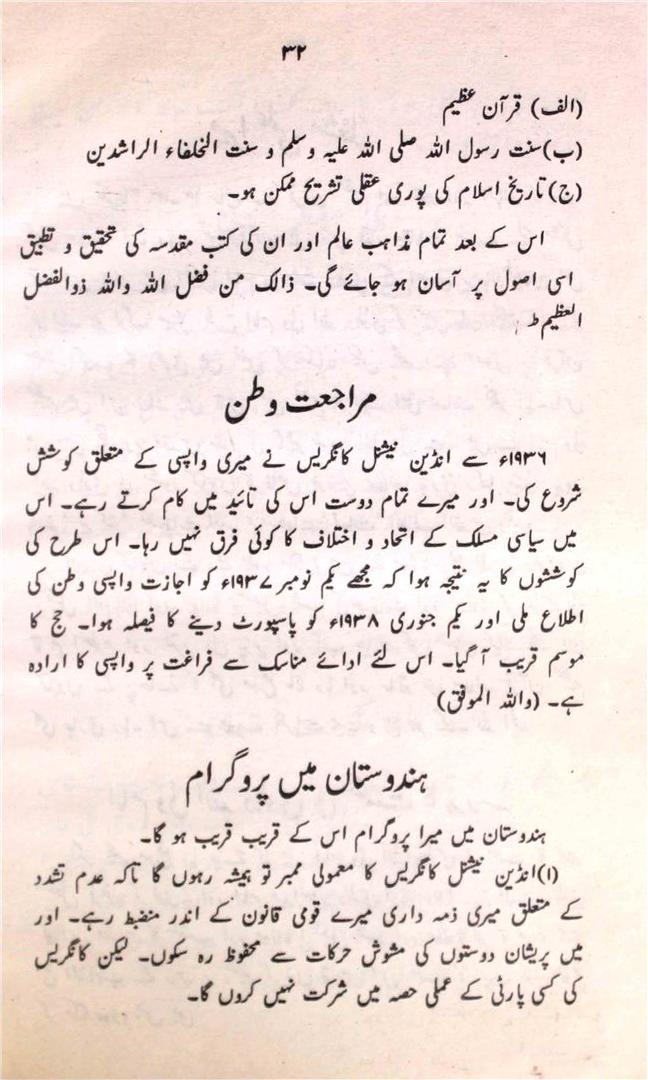 ۳۲
(الف) قرآن عظیم
(ب) سنت رسول اللہ صلی اللہ علیہ وسلم و سنت الخلفاء الراشدین
(ج) تاریخ اسلام کی پوری عقلی تشریح ممکن ہو۔
اس کے بعد تمام مذاہب عالم اور ان کی کتب مقدسہ کی تحقیق و تطبیق
اسی اصول پر آسان ہو جائے گی۔ ذالک من فضل اللہ واللہ ذوالفضل
العظیم ط
مراجعت وطن
۱۹۳۶ء سے انڈین نیشنل کانگریس نے میری واپسی کے متعلق کوشش
شروع کی۔ اور میرے تمام دوست اس کی تائید میں کام کرتے رہے۔ اس
میں سیاسی مسلک کے اتحاد و اختلاف کا کوئی فرق نہیں رہا۔ اس طرح کی
کوششوں کا یہ نتیجہ ہوا کہ مجھے یکم نومبر ۱۹۳۷ء کو اجازت واپسی وطن کی
اطلاع ملی اور یکم جنوری ۱۹۳۸ء کو پاسپورٹ دینے کا فیصلہ ہوا۔ حج کا
موسم قریب آ گیا۔ اس لئے ادائے مناسک سے فراغت پر واپسی کا ارادہ
ہے۔ (واللہ الموفق)
ہندوستان میں پروگرام
ہندوستان میں میرا پروگرام اس کے قریب قریب ہو گا۔
(۱) انڈین نیشنل کانگریس کا معمولی ممبر تو ہمیشہ رہوں گا تاکہ عدم تشدد
کے متعلق میری ذمہ داری میرے قومی قانون کے اندر منضبط رہے۔ اور
میں پریشان دوستوں کی مشوش حرکات سے محفوظ رہ سکوں۔ لیکن کانگریس
کی کسی پارٹی کے عملی حصہ میں شرکت نہیں کروں گا۔